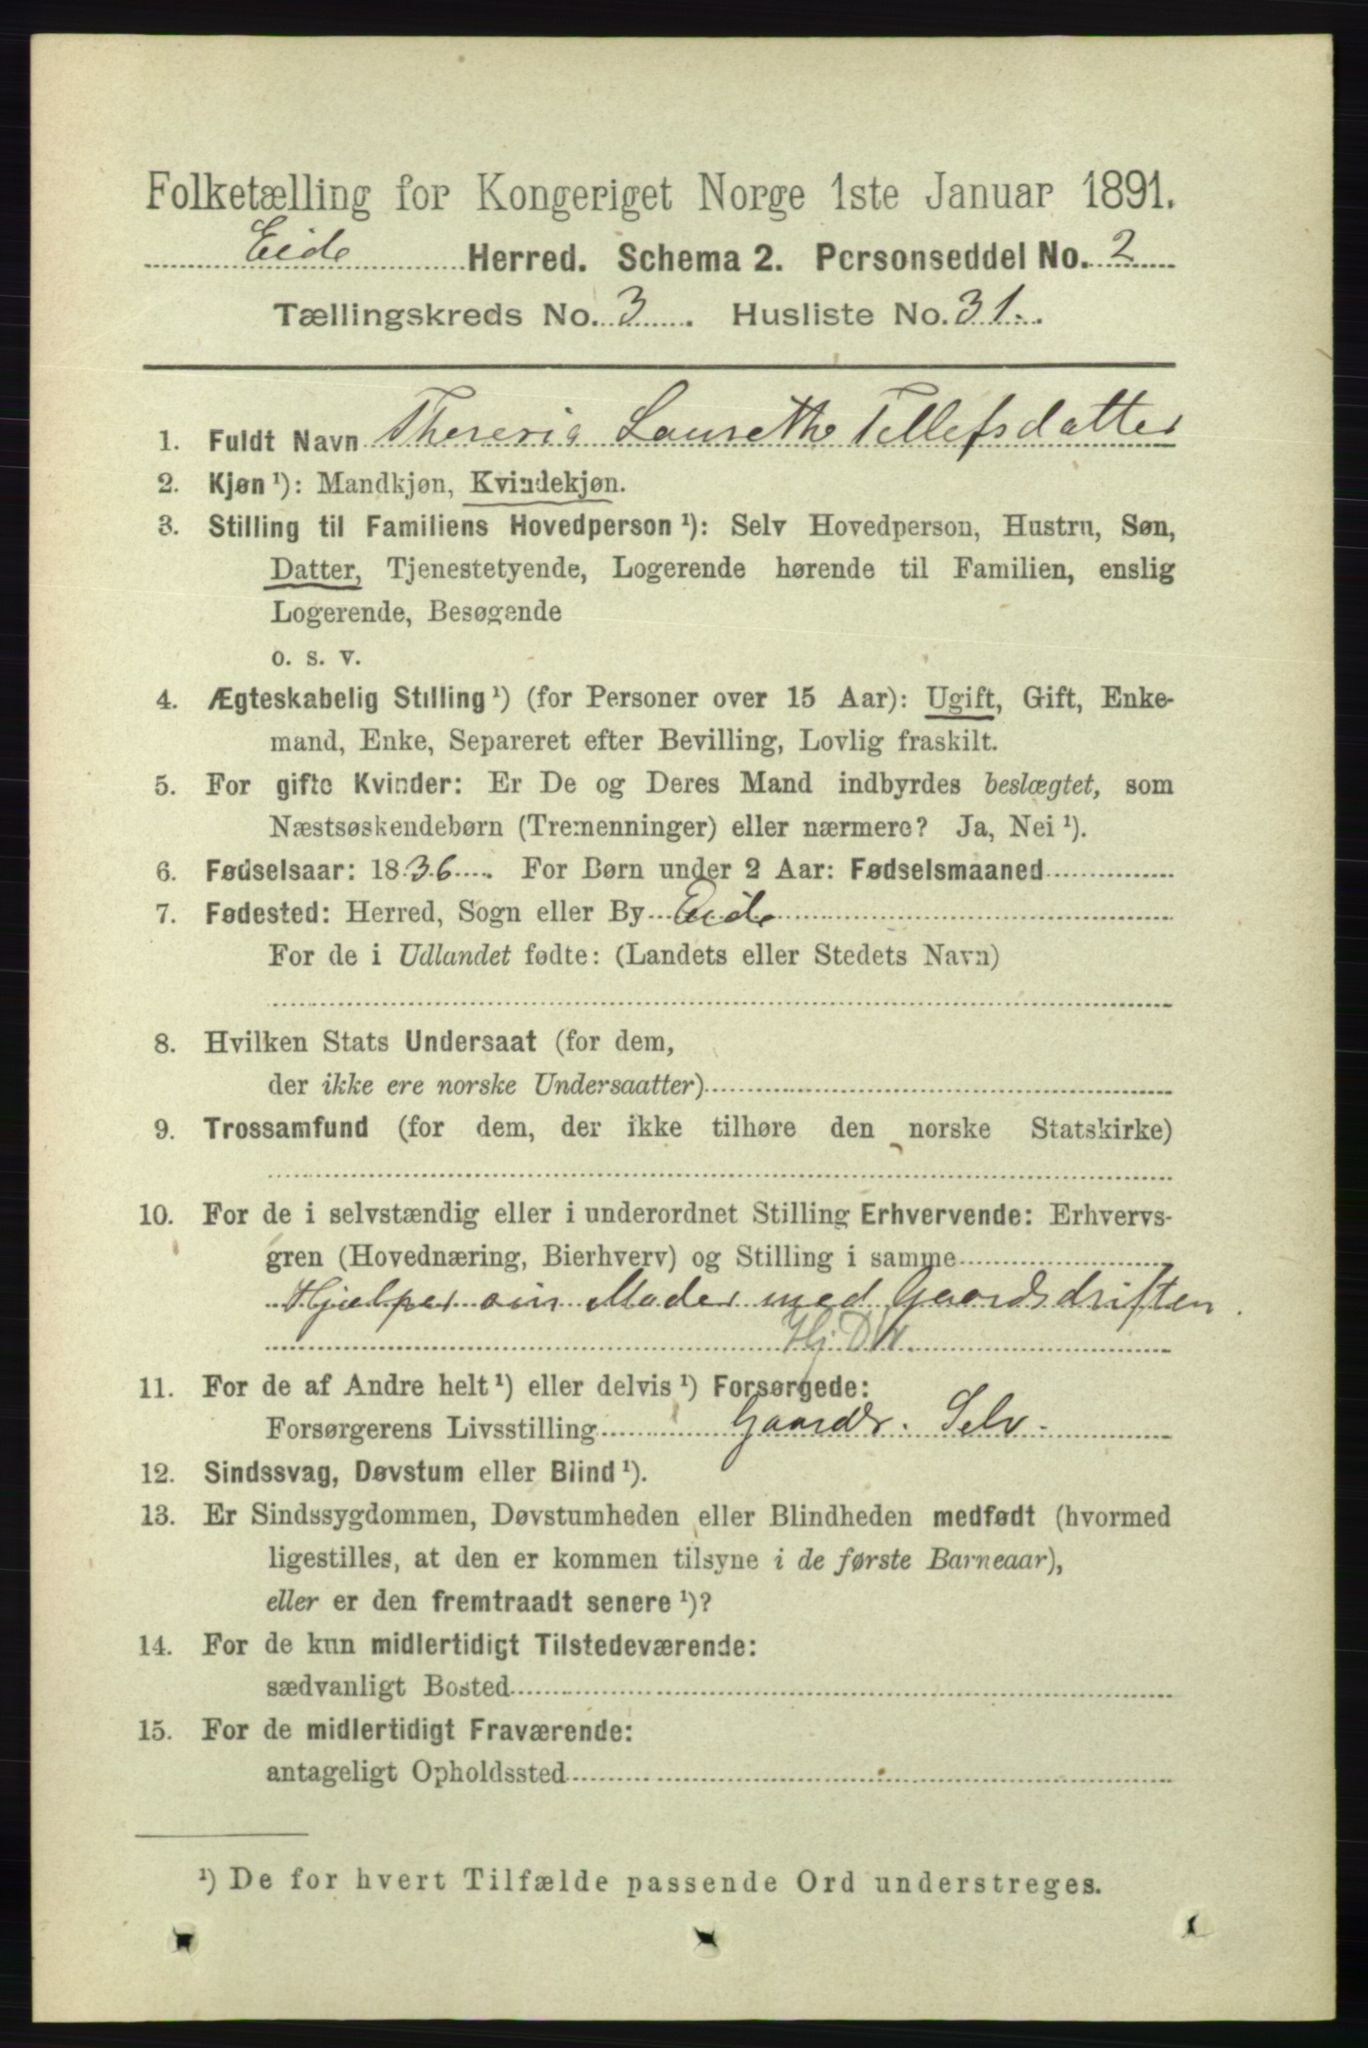 Folketælling for Kongeriget Norge 1ste Januar 1891.
Eide Herred. Schema 2. Personseddel No. 2
Tællingskreds No. 3. Husliste No. 31.
1. Fuldt Navn Thereria Laurethe Tellefsdatter
2. Kjøn ¹): Mandkjøn, Kvindekjøn.
3. Stilling til Familiens Hovedperson ¹): Selv Hovedperson, Hustru, Søn,
Datter, Tjenestetyende, Logerende hørende til Familien, enslig
Logerende, Besøgende
o. s. v.
4. Ægteskabelig Stilling ¹) (for Personer over 15 Aar): Ugift, Gift, Enke-
mand, Enke, Separeret efter Bevilling, Lovlig fraskilt.
5. For gifte Kvinder: Er De og Deres Mand indbyrdes beslægtet, som
Næstsøskendebørn (Tremenninger) eller nærmere? Ja, Nei ¹).
6. Fødselsaar: 1836. For Børn under 2 Aar: Fødselsmaaned
7. Fødested: Herred, Sogn eller By Eide
For de i Udlandet fødte: (Landets eller Stedets Navn)
8. Hvilken Stats Undersaat (for dem,
der ikke ere norske Undersaatter)
9. Trossamfund (for dem, der ikke tilhøre den norske Statskirke)
10. For de i selvstændig eller i underordnet Stilling Erhvervende: Erhvervs-
gren (Hovednæring, Bierhverv) og Stilling i samme
Hjælper sin Moder med Gaardsdriften.
Hj. Dtr.
11. For de af Andre helt ¹) eller delvis ¹) Forsørgede:
Forsørgerens Livsstilling Gaardbr. Selv.
12. Sindssvag, Døvstum eller Blind ¹).
13. Er Sindssygdommen, Døvstumheden eller Blindheden medfødt (hvormed
ligestilles, at den er kommen tilsyne i de første Barneaar),
eller er den fremtraadt senere ¹)?
14. For de kun midlertidigt Tilstedeværende:
sædvanligt Bosted
15. For de midlertidigt Fraværende:
antageligt Opholdssted
¹) De for hvert Tilfælde passende Ord understreges.